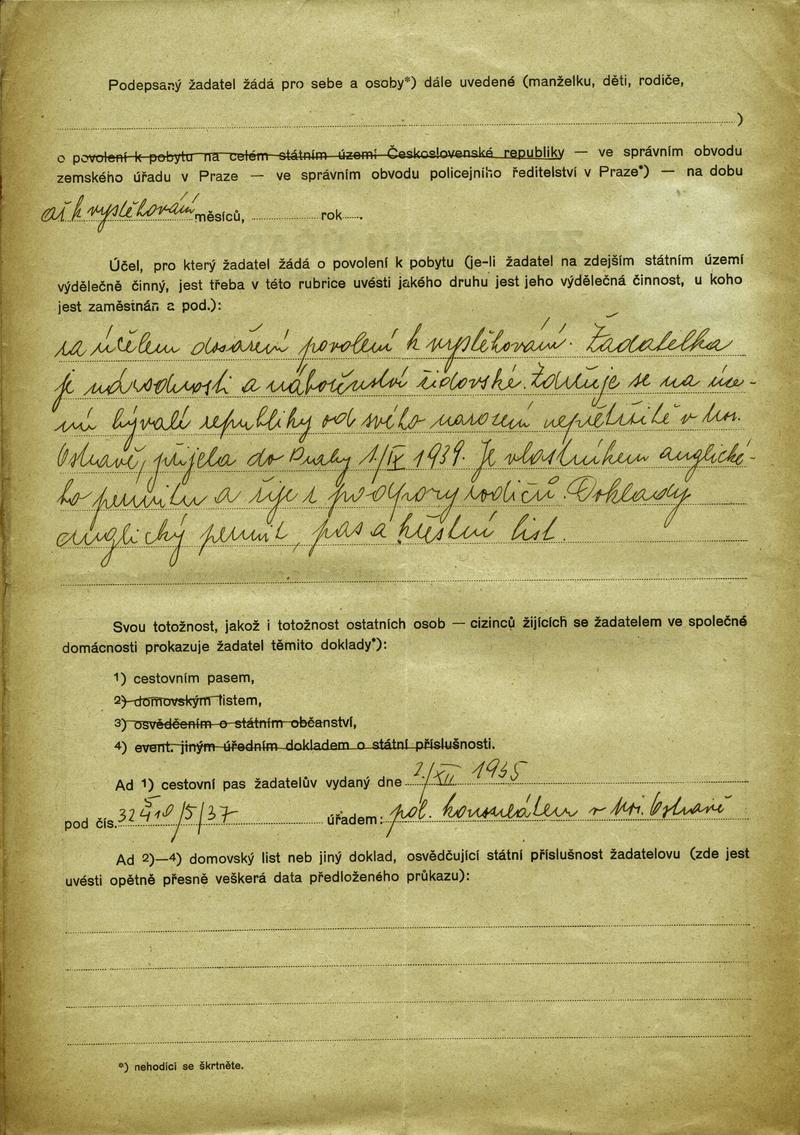 Podepsaný žadatel žádá pro sebe a osoby*) dále uvedené (manželku, děti, rodiče,
)
o povolení k pobytu na celém státním území Československé republiky — ve správním obvodu
zemského úřadu v Praze — ve správním obvodu policejního ředitelství v Praze*) — na dobu
až k vystěhování měsíců, rok .
Účel, pro který žadatel žádá o povolení k pobytu (je-li žadatel na zdejším státním území
výdělečně činný, jest třeba v této rubrice uvésti jakého druhu jest jeho výdělečná činnost, u koho
jest zaměstnán a pod.):
za účelem dosažení povolení k vystěhování. Žadatelka
je národnosti a náboženství židovské. Zdržuje se na úze-
mí bývalé republiky od svého narození nepřetržitě v Mor.
Ostravě, přijela do Prahy 1/IX 1939. Je vlastníkem anglické-
ho permitu a žije z podpory rodičů. Doklady
anglický permit, pas a křestní list.
Svou totožnost, jakož i totožnost ostatních osob — cizinců žijících se žadatelem ve společné
domácnosti prokazuje žadatel těmito doklady*):
1) cestovním pasem,
2) domovským listem,
3) osvědčením o státním občanství,
4) event. jiným úředním dokladem o státní příslušnosti.
Ad 1) cestovní pas žadatelův vydaný dne 2/XII 1935
pod čís. úřadem: pol. konsulátem v Mor. Ostravě
Ad 2)—4) domovský list neb jiný doklad, osvědčující státní příslušnost žadatelovu (zde jest
uvésti opětně přesně veškerá data předloženého průkazu):
*) nehodící se škrtněte.